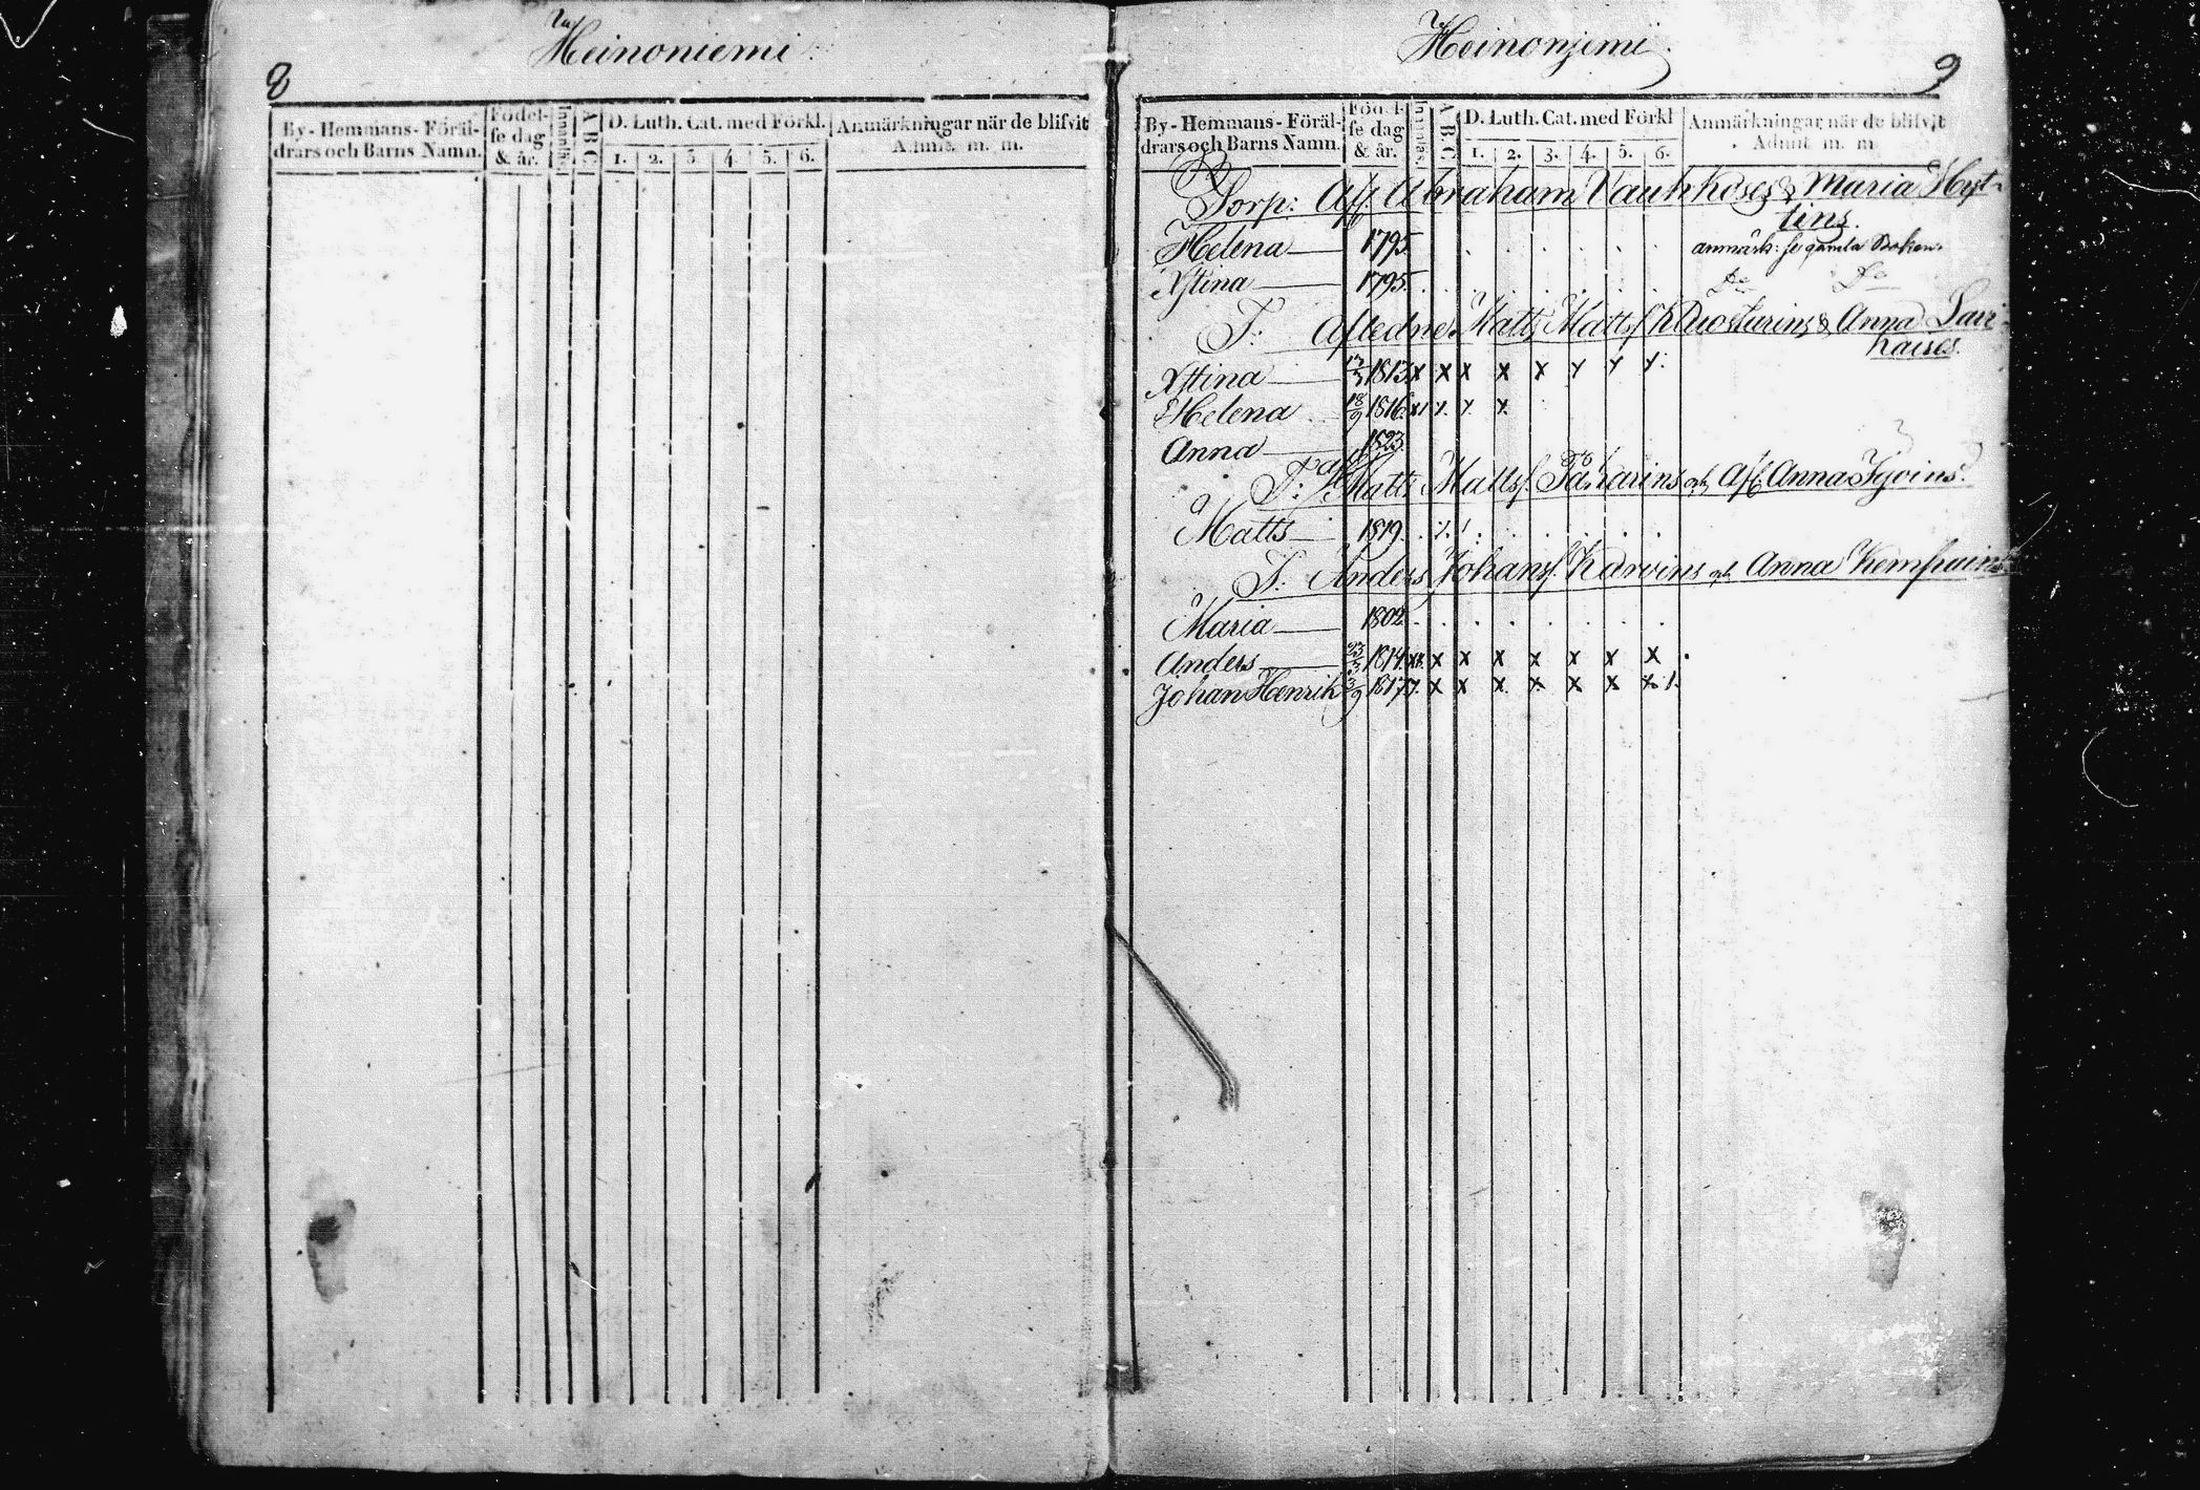 8
Heinoniemi
By-Hemmans-Föräl-
drars och Barns Namn.
Födel-
se dag
& år.
Innanläs.
A B C
D. Luth. Cat. med Förkl.
1. 2. 3. 4. 5. 6.
Anmärkningar när de blifvit
Admit. m. m.
Heinonjemi
9
By-Hemmans-Föräl-
drars och Barns Namn.
Födel-
se dag
& år.
Innanläs.
A B C
D. Luth. Cat. med Förkl
1. 2. 3. 4. 5. 6.
Anmärkningar när de blifvit
Admit m. m
Sorp: Afl. Abraham Vauhkoses & Maria Hyt-
tins.
Helena 1795 anmärk: se gamla Boken.
Xstina 1795. Do Do
T: Afledne Matts Mattss & Anna
Xstina 1813 x x x x x x x x
Helena 18/9 1816 x x x x
Anna 1823
T: afl Matts Mattss. och Afl. Anna
Matts 1819
T: Anders Johanss. Karvins och Anna Kempains
Maria 1802
Anders 1814 x x x x x x x x
Johan Henrik 3/9 1817 x x x x x x x